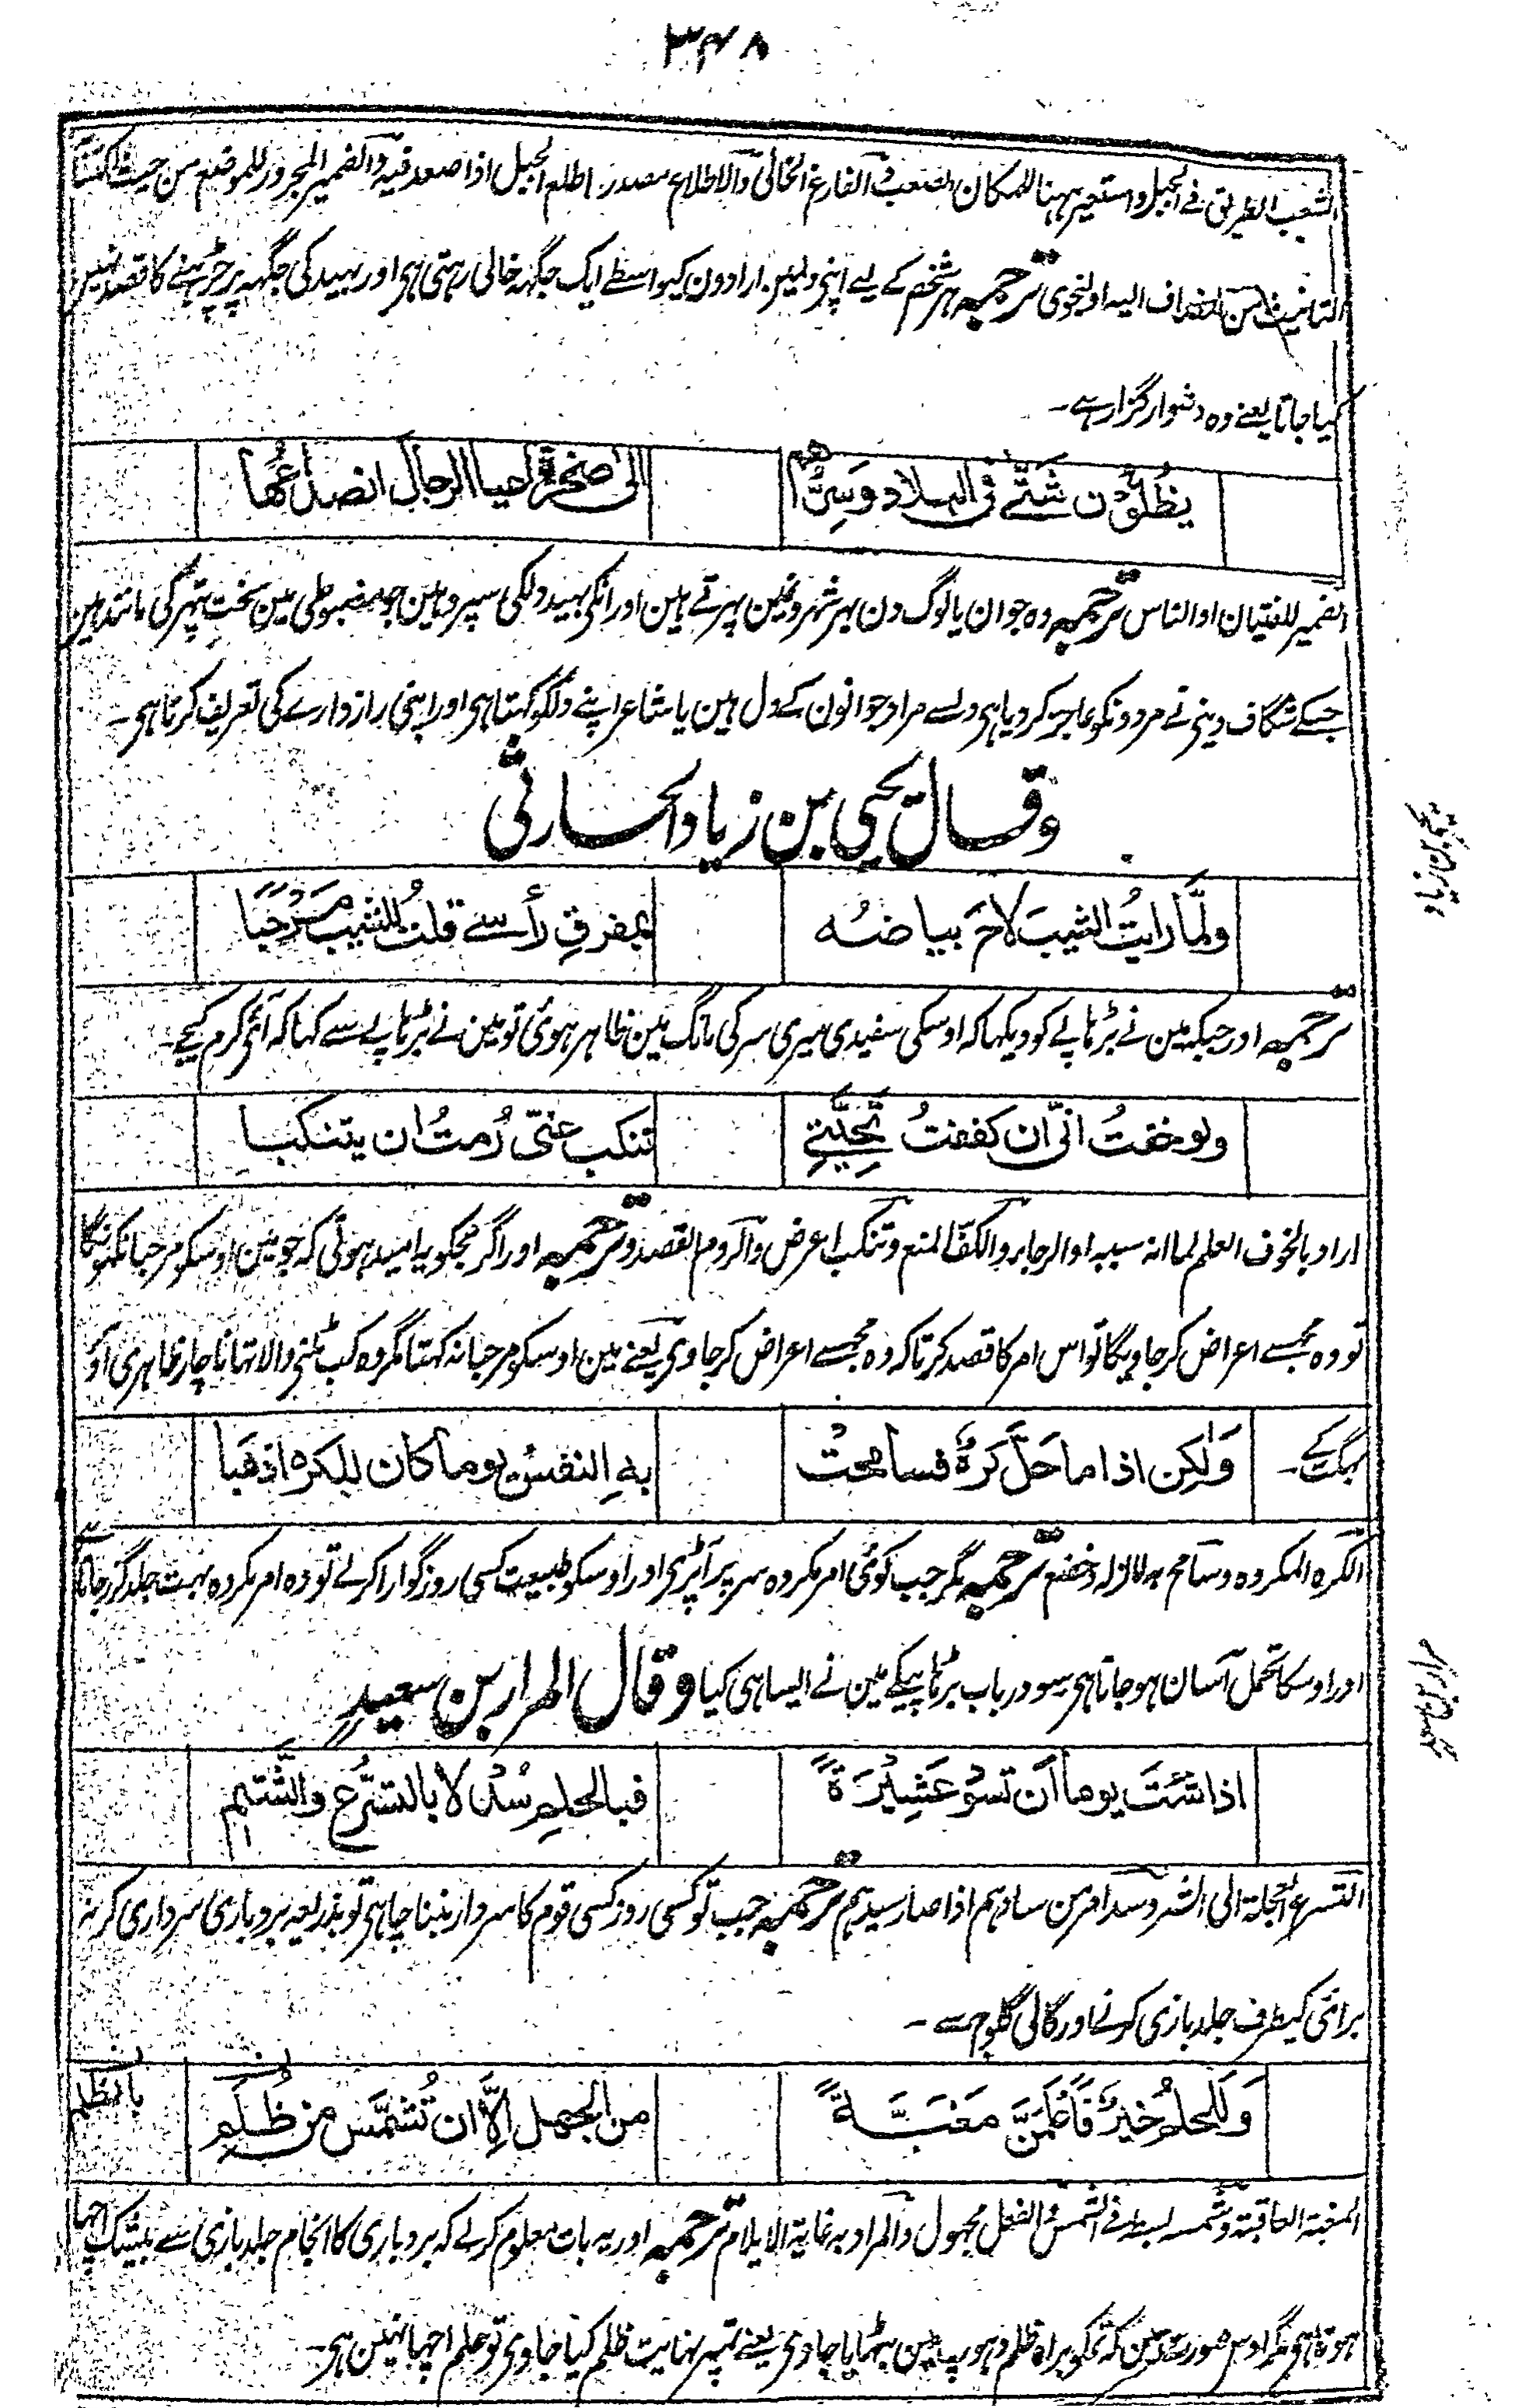 ۳۴۸
الشعب الطریق فے الجبل واستعیر ہہنا للمکان الصعب و الفارغ الخالی والاطلاع مصدر اطلع الجبل اذا صعد فیہ والضمیر المجرور للموضع من حیث اکتسابہ
التانیث من المضاف الیہ او للنجوی ترجمہ ہر شخص کے لیے اپنی دلمین ارادون کیواسطے ایک جگہہ خالی رہتی ہی اور بہید کی جگہہ پر چڑہنے کا قصد نہین
کیا جاتا یعنے وہ دشوار گزار ہے۔
یظلّون شتّے فی البلاد وسِرُّهم
الی صخرۃ اعیا الرجال انصداعُها
الضمیر للفتیان او الناس ترجمہ وہ جوان یا لوگ دن بہر شہرونمین پہرتے ہین اور انکی بہید دلکی سپرد ہین جو مضبوطی مین سخت پتہر کی مانند ہین
جسکے شگاف دینی نے مردونکو عاجز کر دیا ہی دلسے مراد جوانون کے دل ہین یا شاعر اپنے دلکو کہتا ہی اور اپنی رازدارے کی تعریف کرتا ہی۔
وقال یحیی بن زیاد الحارثی
یحیی بن زیاد
ولمّا رایتُ الشیبَ لاحَ بیاضُه
بمفرقِ رأسے قلتُ للشیب مَرْحبًا
ترجمہ اور جبکہ مین نے بڑہاپے کو دیکہا کہ اوسکی سفیدی میری سر کی مانگ مین ظاہر ہوئی تو مین نے بڑہاپے سے کہا کہ آئی کرم کیجے۔
ولو خفتُ انّی ان کففتُ تحیّتے
تنکب عنّی رُمتُ ان یتنکبا
اراد بالخوف العلم لما انہ سببہ او الرجاء والکفّ المنع وتنکب اعرض والروم القصد ترجمہ اور اگر مجکو یہ امید ہوتی کہ جو مین اوسکو مرحبا نکہونگا
تو وہ مجسے اعراض کر جاویگا تو اس امر کا قصد کرتا کہ وہ مجسے اعراض کر جاوی یعنے مین اوسکو مرحبا نہ کہتا مگر وہ کب ٹلنی والا تہا ناچار ظاہری آو
بہگت کے۔
وَلٰکن اذا ما حَلّ کرہٌ فسامحتْ
بہِ النفسُ یوما کان للکرہ اذهَبا
الکرہ المکروہ وسامح بہ لان لہ وخضع ترجمہ مگر جب کوئی امر مکروہ سر پر آپڑی اور اوسکو طبیعت کسی روز گوارا کرلے تو وہ امر مکروہ بہت جلد گزر جاتا ہے
اور اوسکا تحمل آسان ہو جاتا ہی سو درباب بڑہاپیکے مین نے ایسا ہی کیا وقال المرار بن سعید
اذا شئتَ یوما اَن تسوُدَ عَشِیْرَۃً
فبالحلمِ سُدْ لا بالتسَرُّعِ والشَّتم
التسرع العجلۃ الی الشر وسد امر من سادہم اذا صار سیدہم ترجمہ جب تو کسی روز کسی قوم کا سردار بننا چاہی تو بذریعہ بردباری سرداری کر نہ
برائی کیطرف جلد بازی کرنے اور گالی گلوچ سے۔
وَلَلحلمُ خیرٌ فَاعْلَمَنَّ مَغَبَّۃً
من الجهل اِلّا ان تُشمَّسَ من ظُلمِ
المغبۃ العاقبۃ وشمسہ بسطہ فے الشمس الفعل مجہول والمراد بہ غایۃ الایلام ترجمہ اور یہ بات معلوم کرلے کہ بردباری کا انجام جلد بازی سے بیشک اچہا
ہوتا ہی مگر اوس صورت مین کہ تمکو براہ ظلم دہوپ مین بٹہایا جاوی یعنے تمپر نہایت ظلم کیا جاوی تو حلم اچہا نہین ہی۔